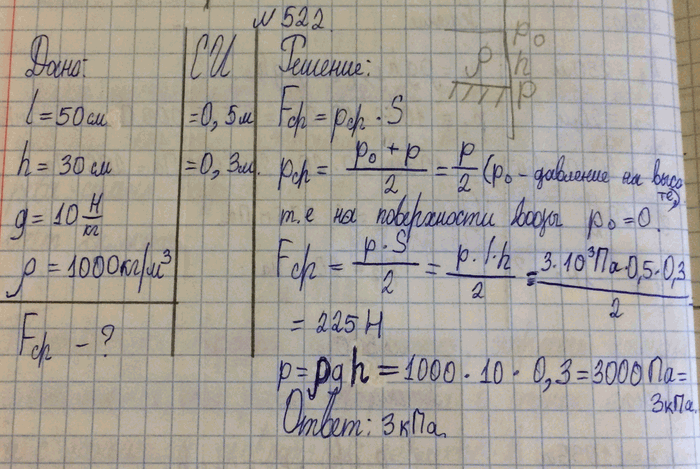 №522.
Дано:
l = 50 см
h = 30 см
g = 10 Н/кг
ρ = 1000 кг/м³
Fср - ?
СИ
= 0,5 м
= 0,3 м.
Решение:
p₀
ρ h
p
Fср = pср · S
pср = (p₀ + p)/2 = p/2 (p₀ - давление на высо
те,)
т.е на поверхности воды p₀ = 0.
Fср = (p · S)/2 = (p · l · h)/2 = (3 · 10³ Па · 0,5 · 0,3)/2
= 225 Н
p = ρgh = 1000 · 10 · 0,3 = 3000 Па =
3кПа.
Ответ: 3кПа.